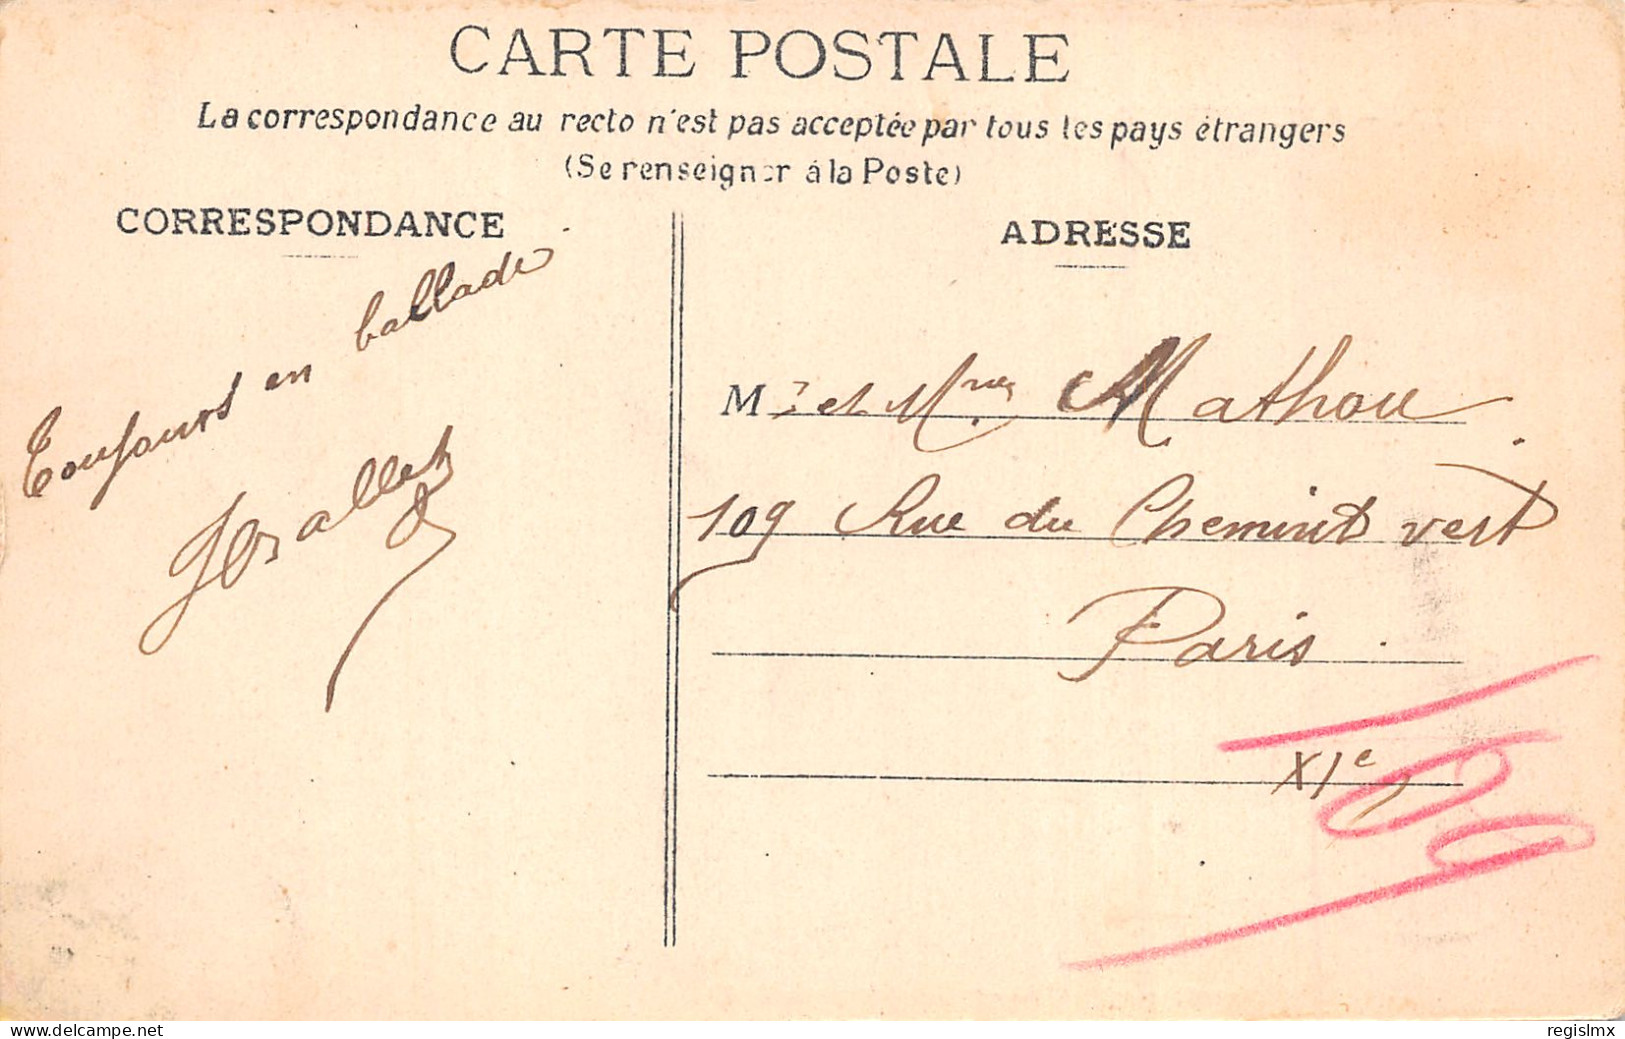 CARTE POSTALE
La correspondance au recto n'est pas acceptée par tous les pays étrangers
(Se renseigner à la Poste)
CORRESPONDANCE
Toujours en ballade
ADRESSE
M et Mme Mathou
109 Rue du Chemin vert
Paris
XIe
delcampe.net
regislmx